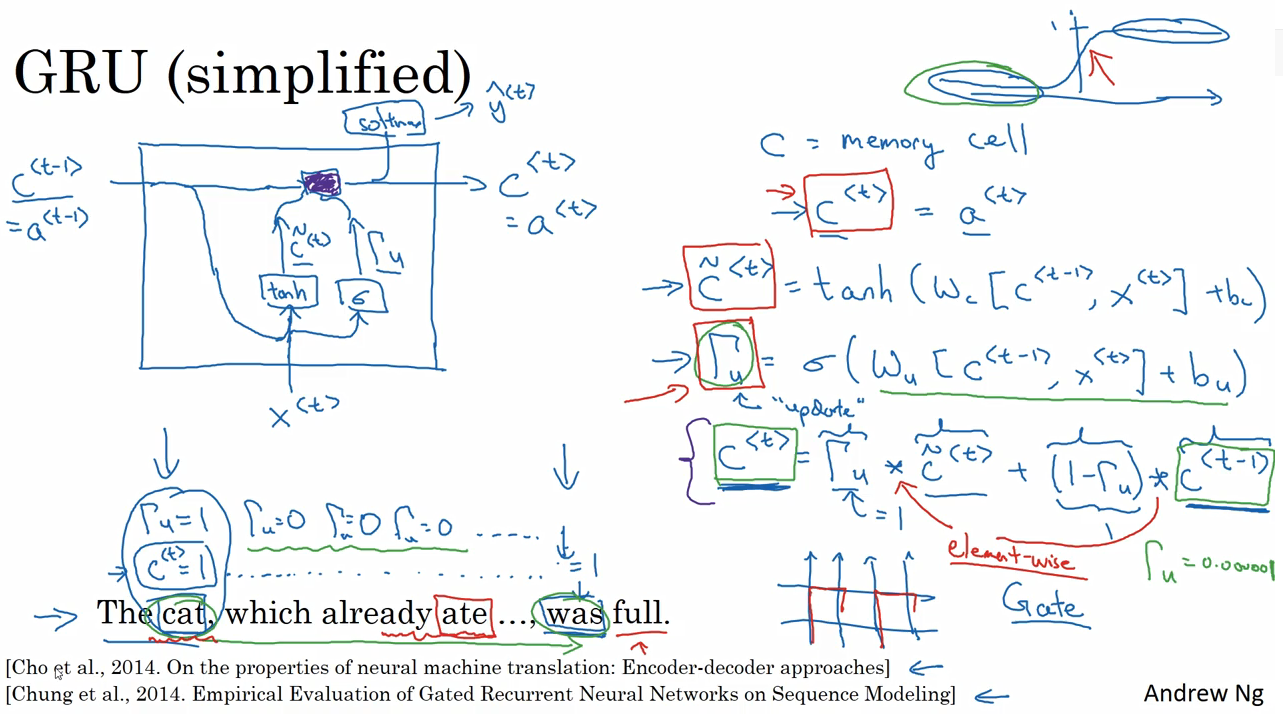 GRU (simplified)
softmax → ŷ<t>
1
c<t-1>
= a<t-1>
c<t>
= a<t>
c̃<t>
Γu
tanh
σ
x<t>
c = memory cell
c<t> = a<t>
c̃<t> = tanh (Wc [c<t-1>, x<t>] + bc)
Γu = σ (Wu [c<t-1>, x<t>] + bu)
"update"
c<t> = Γu * c̃<t> + (1-Γu) * c<t-1>
= 1
1
element-wise
Γu = 0.000001
Gate
Γu = 1 Γu=0 Γu=0 Γu=0 ......
c<t> = 1 ........ = 1
The cat, which already ate ..., was full.
[Cho et al., 2014. On the properties of neural machine translation: Encoder-decoder approaches] ←
[Chung et al., 2014. Empirical Evaluation of Gated Recurrent Neural Networks on Sequence Modeling] ←
Andrew Ng